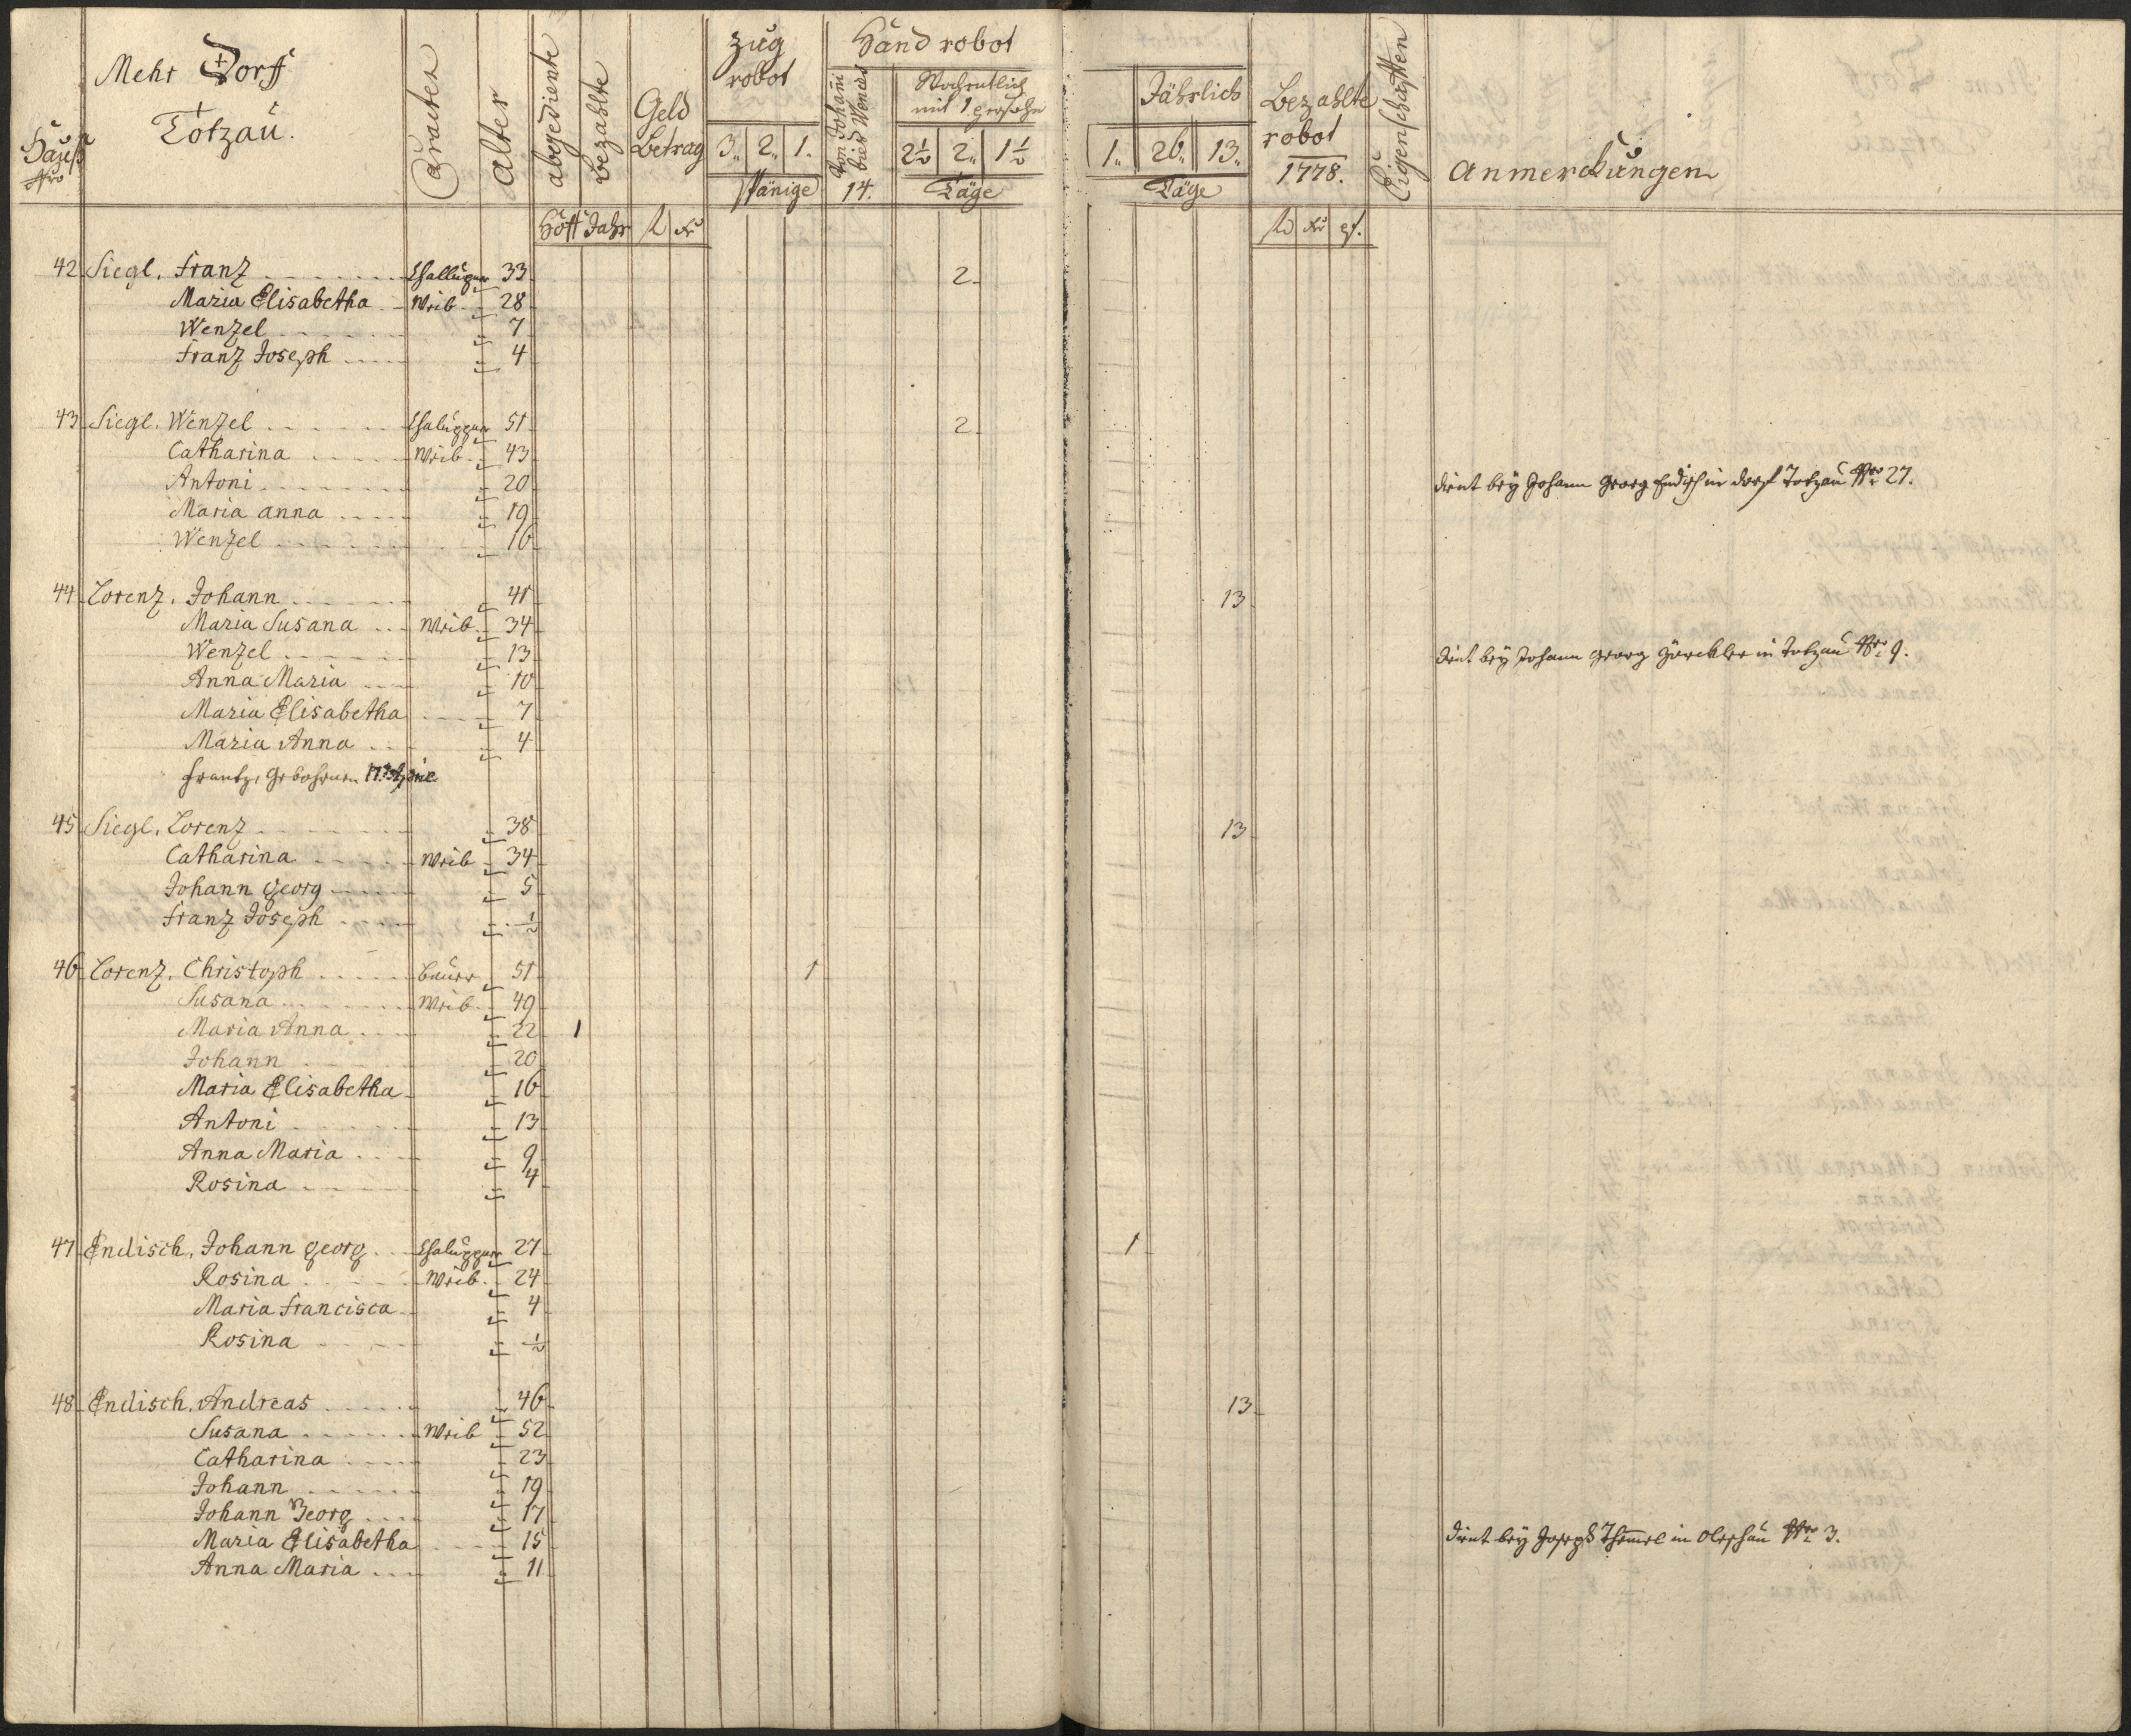 Mehr Dorff
Totzau.
Hauß Nro
Caracter
alter
abgediente
bezahlte
Geld Betrag
Zug robot
3„ 2„ 1„
spänige
Hand robot
Von Johani bies Wences
14.
Wochentlich mit 1 persohn
2½ 2„ 1½
Täge
Jährlich
1„ 26„ 13„
Täge
Bezahlte robot
1778.
Eigenschafften
Anmerckungen
Hoff Jahr fl kr
fl kr pf.
42 Siegl. Franz Challuper 33 2
Maria Elisabetha Weib 28
Wenzel 7
Franz Joseph 4
43 Siegl. Wenzel Chalupper 51 2
Catharina Weib 43
Antoni 20 dient bey Johann Georg Endisch in dorf Totzau Nro 27.
Maria anna 19
Wenzel 16
44 Lorenz. Johann 41 13
Maria Susana Weib 34
Wenzel 13 dient bey Johann Georg in Totzau Nro 9.
Anna Maria 10
Maria Elisabetha 7
Maria Anna 4
Frantz, gebohren
45 Siegl. Lorenz 38 13
Catharina Weib 34
Johann georg 5
Franz Joseph ½
46 Lorenz. Christoph bauer 51 1
Susana Weib 49
Maria Anna 22 1
Johann 20
Maria Elisabetha 16
Antoni 13
Anna Maria 9
Rosina 4
47 Endisch. Johann georg Chalupper 27 1
Rosina Weib 24
Maria Francisca 4
Rosina ½
48 Endisch. Andreas 46 13
Susana Weib 52
Catharina 23
Johann 19
Johann Georg 17
Maria Elisabetha 15 dient bey Joseph in Oleschau Nro 3.
Anna Maria 11